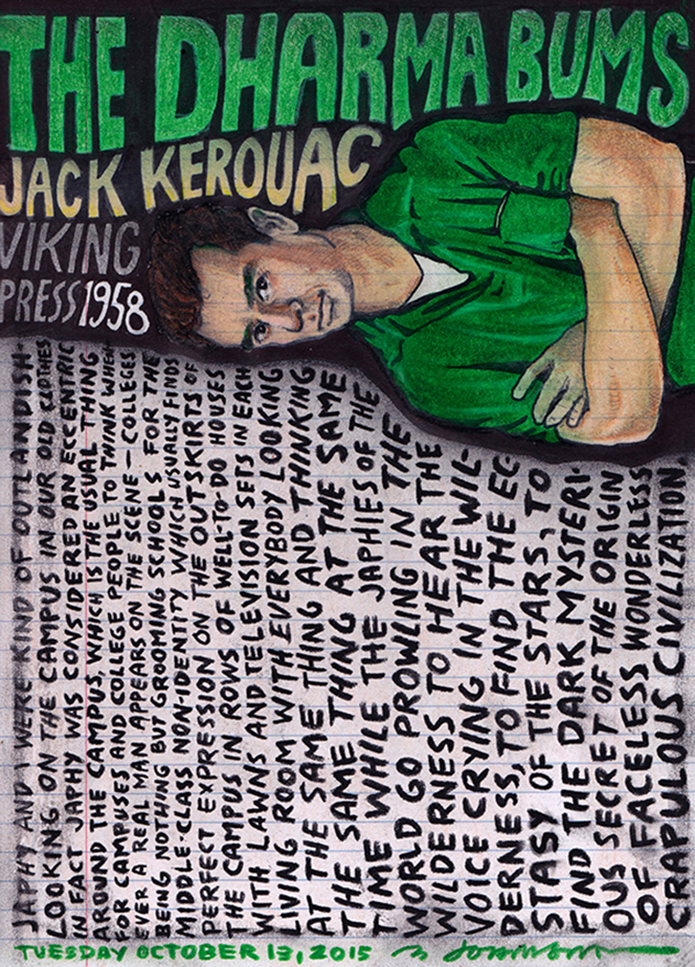 THE DHARMA BUMS
JACK KEROUAC
VIKING
PRESS 1958
JAPHY AND I WERE KIND OF OUTLANDISH-
LOOKING ON THE CAMPUS IN OUR OLD CLOTHES
IN FACT JAPHY WAS CONSIDERED AN ECCENTRIC
AROUND THE CAMPUS, WHICH IS THE USUAL THING
FOR CAMPUSES AND COLLEGE PEOPLE TO THINK WHEN-
EVER A REAL MAN APPEARS ON THE SCENE — COLLEGES
BEING NOTHING BUT GROOMING SCHOOLS FOR THE
MIDDLE-CLASS NON-IDENTITY WHICH USUALLY FINDS
PERFECT EXPRESSION ON THE OUTSKIRTS OF
THE CAMPUS IN ROWS OF WELL-TO-DO HOUSES
WITH LAWNS AND TELEVISION SETS IN EACH
LIVING ROOM WITH EVERYBODY LOOKING
AT THE SAME THING AND THINKING
THE SAME THING AT THE SAME
TIME WHILE THE JAPHIES OF THE
WORLD GO PROWLING IN THE
WILDERNESS TO HEAR THE
VOICE CRYING IN THE WIL-
DERNESS, TO FIND THE EC-
STASY OF THE STARS, TO
FIND THE DARK MYSTERI-
OUS SECRET OF THE ORIGIN
OF FACELESS WONDERLESS
CRAPULOUS CIVILIZATION.
TUESDAY OCTOBER 13, 2015